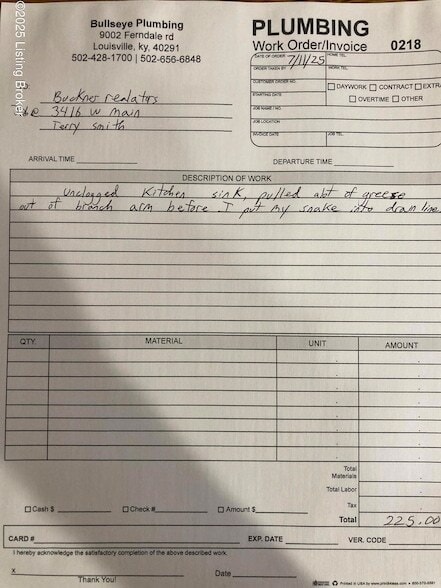 ©2025 Listing Broker
Bullseye Plumbing
9002 Ferndale rd
Louisville, ky, 40291
502-428-1700 | 502-656-6848
PLUMBING
Work Order/Invoice 0218
DATE OF ORDER 7/11/25 HOME TEL.
ORDER TAKEN BY WORK TEL.
CUSTOMER ORDER NO.
STARTING DATE
☐ DAYWORK ☐ CONTRACT ☐ EXTRA
☐ OVERTIME ☐ OTHER
JOB NAME / NO.
JOB LOCATION
INVOICE DATE JOB TEL.
Buckner realators
3416 w main
Terry smith
ARRIVAL TIME DEPARTURE TIME
DESCRIPTION OF WORK
Unclogged Kitchen sink, pulled abt of greese
out of branch arm before I put my snake into drain line
QTY. MATERIAL UNIT AMOUNT
Total
Materials
Total Labor
☐ Cash $ ☐ Check # ☐ Amount $ Tax
Total 225.00
CARD # EXP. DATE VER. CODE
I hereby acknowledge the satisfactory completion of the above described work.
X Date
Thank You!